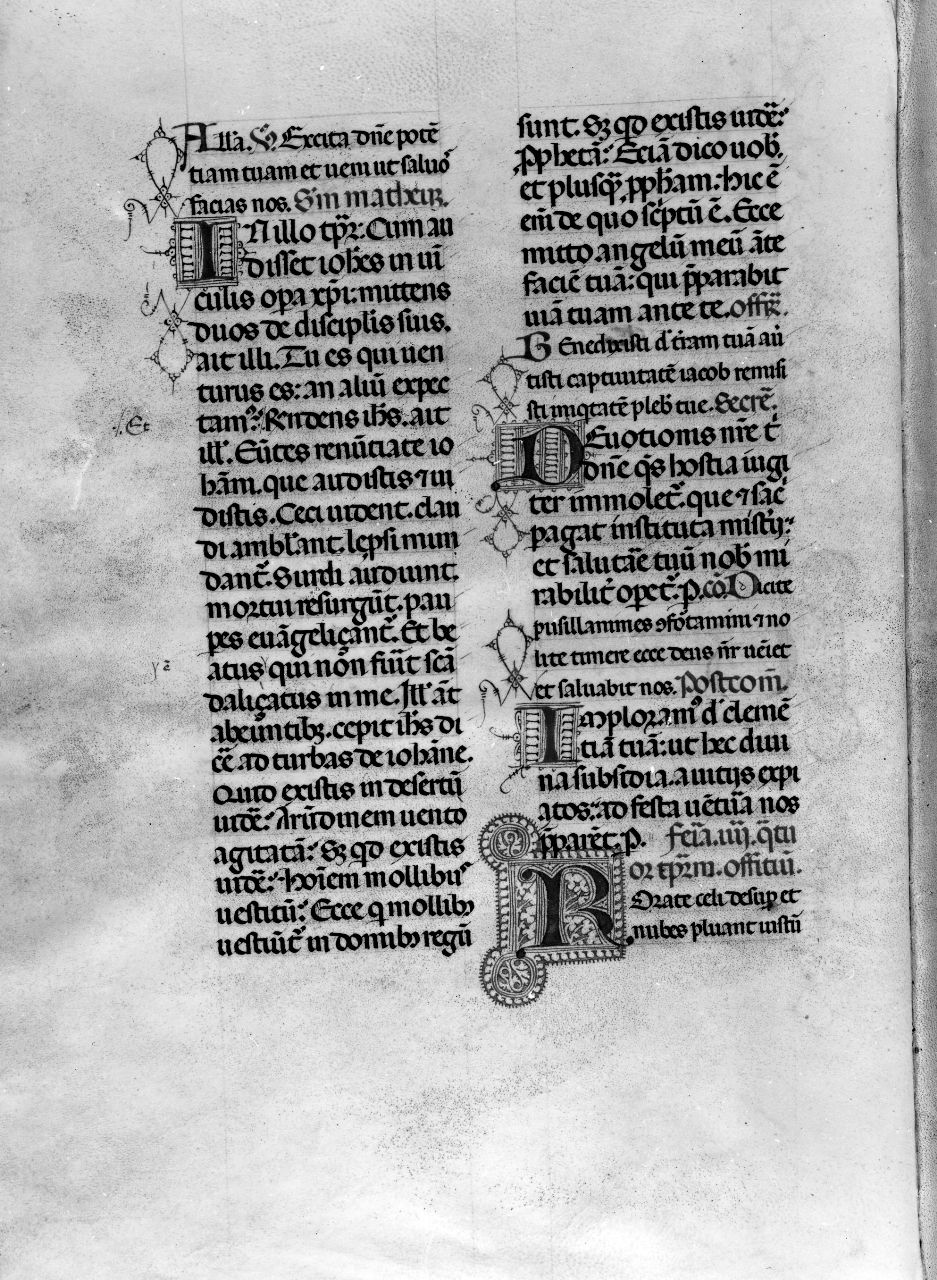 Alla. V̄. Excita dn̄e potē
tiam tuam et ueni ut saluoˢ
facias nos. S'm matheuꝝ.
IN illo tp̄ꝛ: Cum au
disset ioh̄es in uī
culis oꝑa xp̄i: mittens
duos de discipl̄is suis.
ait illi. Tu es qui uen
turus es: an aliū expec
tamꝰ: Rn̄dens ih̄s. ait
./. Et
ill̄. Eūtes renūtiate io
hāni. que audistis ⁊ ui
distis. Ceci uident. clau
di ambl̄ant. lep̄si mun
dant̄. Surdi audiunt.
mortui resurgūt. pau
ꝑes euāgeliçant̄. Et be
atus qui nōn fuīt scā
daliçatus in me. Ill̄ āt
abeūntibꝫ. cepit ih̄s di
cē ad turbas de iohāne.
Quid existis in desertū
uidē: Arūdinem uento
agitatā: Sꝫ qd existis
uidē: hoīem mollibuˢ
uestitū: Ecce q mollibꝫ
uestiūt̄ in domibꝫ regū
sunt. Sꝫ qd existis uidē:
Ꝓphetā: Eciā dico uob̄.
et plusqꝫ ꝓph̄am: hic ē
eni de quo sc̄ptū ē. Ecce
mitto angelū meū āte
faciē tuā: qui p̄parabit
uiā tuam ante te. off̄.
Benedixisti d̄ t̄ram tuā aū
tisti captiuitatē iacob remisi
sti iniqtatē pleb̄ tue. Secrē.
DEuotionis nr̄e t̄
dn̄e qs̄ hostia iugi
ter immolet̄. que ⁊ sac̄
pagat instituta mist̄ij:
et salutar̄e tuū nob̄ mi
rabilit̄ oꝑet̄. ꝑ. cō. Dicite
pusillanimes ꝯfōtamini ⁊ no
lite timere ecce deus nr̄ ueīet
et saluabit nos. Postcom̄.
Imploramꝰ d̄ clemē
tiā tuā: ut hec diui
na subsidia. a uitijs expi
atos: ad festa uētura nos
p̄parēt. ꝑ. fer̄ia. iiij. q̄tu
or tp̄rm. offitiū.
ROrate celi desuꝑ et
nubes pluant iustū